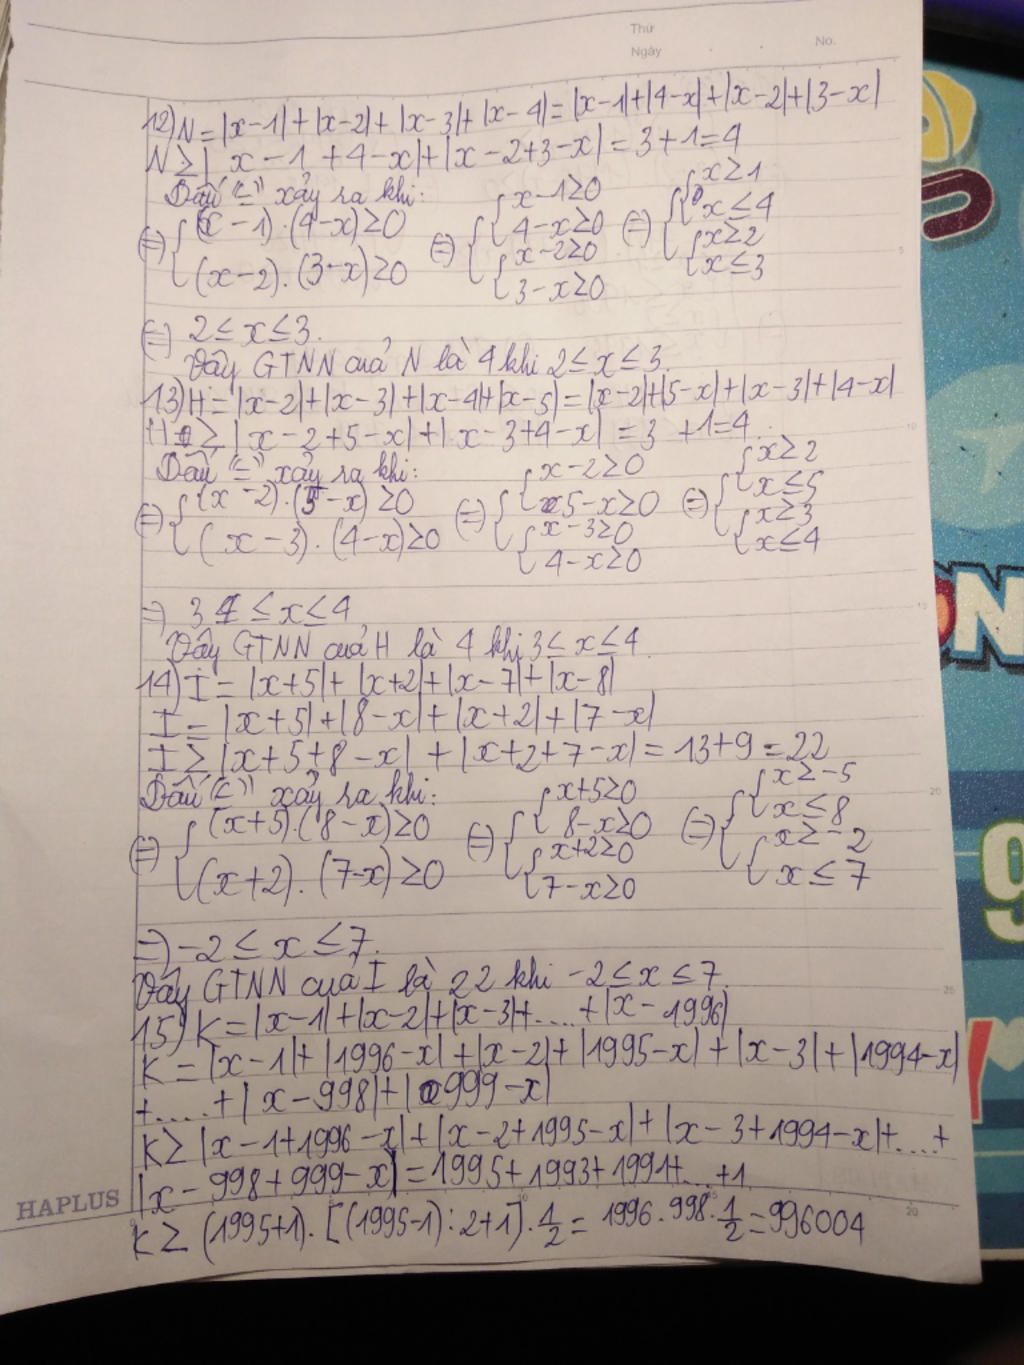 Thứ
Ngày
No.
12) N = |x-1| + |x-2| + |x-3| + |x-4| = |x-1| + |4-x| + |x-2| + |3-x|
N ≥ | x - 1 + 4 - x| + |x - 2 + 3 - x| = 3 + 1 = 4
Dấu "=" xảy ra khi:
(=) { (x - 1).(4-x) ≥ 0 (=) { x-1 ≥ 0 (=) { x ≥ 1
4-x ≥ 0 x ≤ 4
(x-2).(3-x) ≥ 0 { x-2 ≥ 0 { x ≥ 2
3-x ≥ 0 x ≤ 3
(=) 2 ≤ x ≤ 3.
Vậy GTNN của N là 4 khi 2 ≤ x ≤ 3.
13) H = |x-2| + |x-3| + |x-4| + |x-5| = |x-2| + |5-x| + |x-3| + |4-x|
H ≥ | x - 2 + 5 - x| + | x - 3 + 4 - x| = 3 + 1 = 4.
Dấu "=" xảy ra khi:
(=) { (x - 2).(5 - x) ≥ 0 (=) { x-2 ≥ 0 (=) { x ≥ 2
5-x ≥ 0 x ≤ 5
( x - 3).(4-x) ≥ 0 { x-3 ≥ 0 { x ≥ 3
4-x ≥ 0 x ≤ 4
=) 3 ≤ x ≤ 4
Vậy GTNN của H là 4 khi 3 ≤ x ≤ 4.
14) I = |x+5| + |x+2| + |x-7| + |x-8|
I = |x+5| + |8-x| + |x+2| + |7-x|
I ≥ |x+5+8-x| + |x+2+7-x| = 13+9 = 22
Dấu "=" xảy ra khi:
(=) { (x+5).(8-x) ≥ 0 (=) { x+5 ≥ 0 (=) { x ≥ -5
8-x ≥ 0 x ≤ 8
(x+2).(7-x) ≥ 0 { x+2 ≥ 0 { x ≥ -2
7-x ≥ 0 x ≤ 7
=) -2 ≤ x ≤ 7.
Vậy GTNN của I là 22 khi -2 ≤ x ≤ 7.
15) K = |x-1| + |x-2| + |x-3| + .... + |x-1996|
K = |x-1| + |1996-x| + |x-2| + |1995-x| + |x-3| + |1994-x|
+ ..... + | x-998| + |999-x|
K ≥ |x-1+1996-x| + |x-2+1995-x| + |x-3+1994-x| + .... +
|x - 998 + 999 - x| = 1995 + 1993 + 1991 + ... + 1
K ≥ (1995+1).[(1995-1):2+1].1/2 = 1996.998.1/2 = 996004
HAPLUS
5
10
15
20
25
0
10
15
20
ON
9